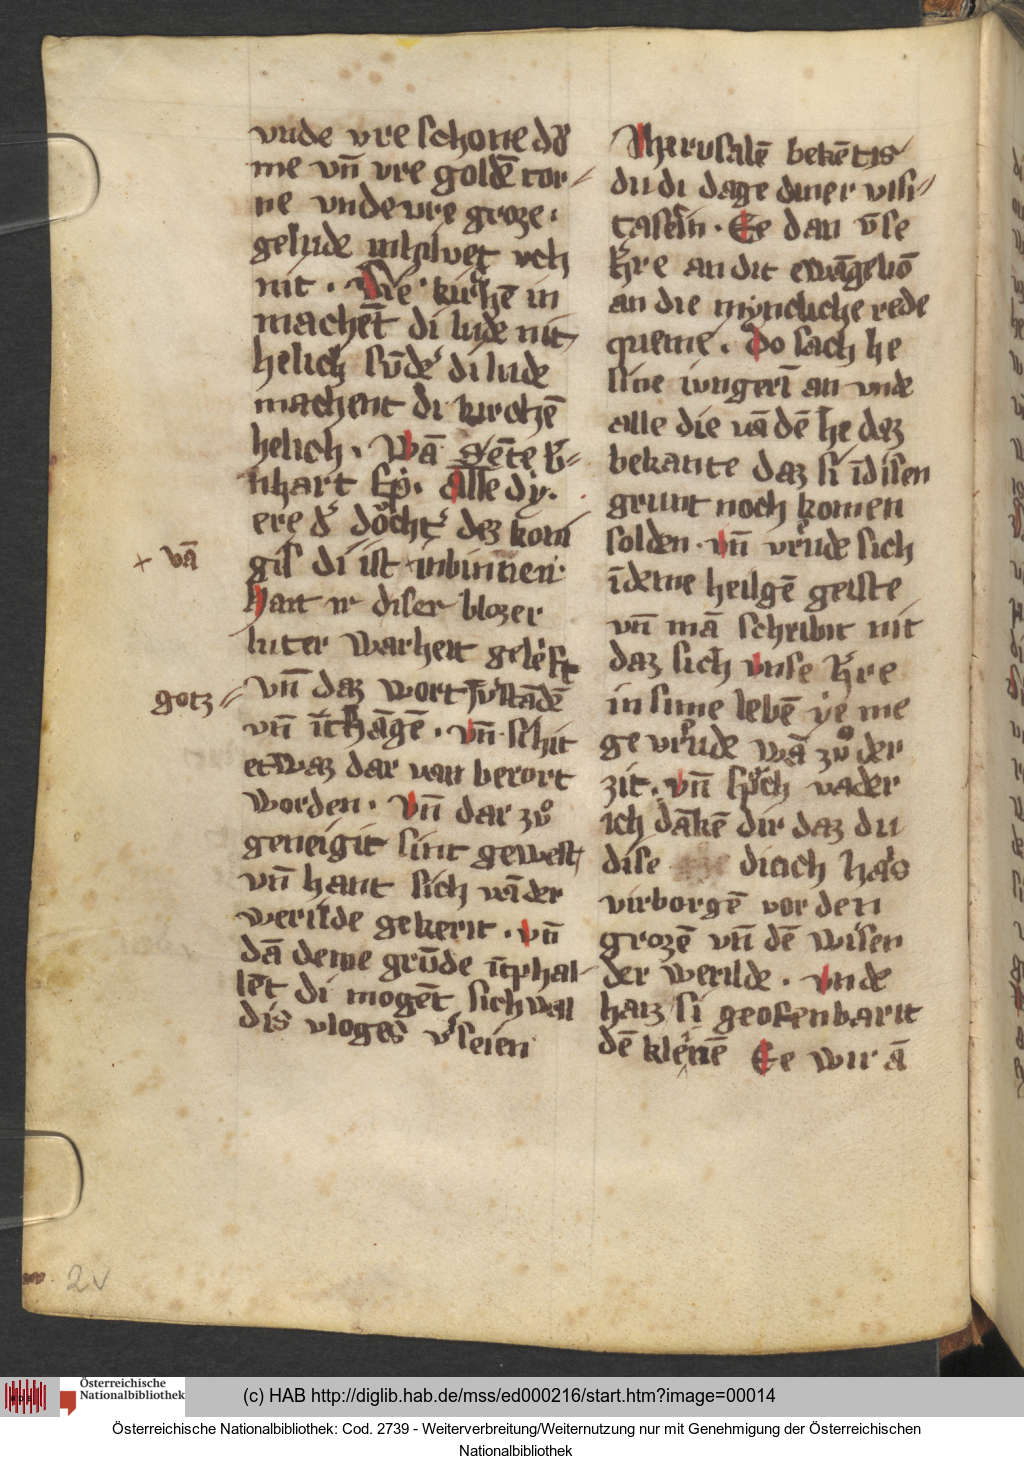 vnde vre schone dō
me vn̄ vre goldē cor-
ne vnde vre groze.
gelude inhilvet vch
nit. Die kirchē in
machēt di lude nit
helich sv̄der di lude
machent di kirchen
helich. Vā sēte
nhart sp̄. alle dy.
ere der dochter dez koni
gis di ist inbinnen.
hant ir diser blozer
luter warheit gelost
vn̄ daz wort vstādē
vn̄ vn̄ schit
etwaz dar van berort
worden. vn̄ dar zv̊
geneigit sint gewest
vn̄ hant sich vā der
werilde gekerit. vn̄
dā deme grv̄de
lēt di mogēt sich van
dis vloges vseien
+ vā
gotz
Iherusalē bekētis
du di dage diner visi-
tasein. Ee dan v̄se
h're an dit ewāgeliō
an die myncliche rede
queme. do sach he
sine iungerī an vnde
alle die vā dē he dez
bekante daz si ī disen
grunt noch komen
solden. vn̄ vrude sich
ī deme heilgē geiste
vn̄ mā schribit nit
daz sich vnse h're
in sime lebē ye me
gevrude wā zv̊ der
zit. vn̄ sprch vader
ich dākē dir daz du
dise dinch has
virborgē vor den
grozē vn̄ dē wisen
der werilde. vnde
haiz si geofenbarit
dē klenē Ee wir ā
2v
Österreichische
Nationalbibliothek
(c) HAB http://diglib.hab.de/mss/ed000216/start.htm?image=00014
Österreichische Nationalbibliothek: Cod. 2739 - Weiterverbreitung/Weiternutzung nur mit Genehmigung der Österreichischen
Nationalbibliothek